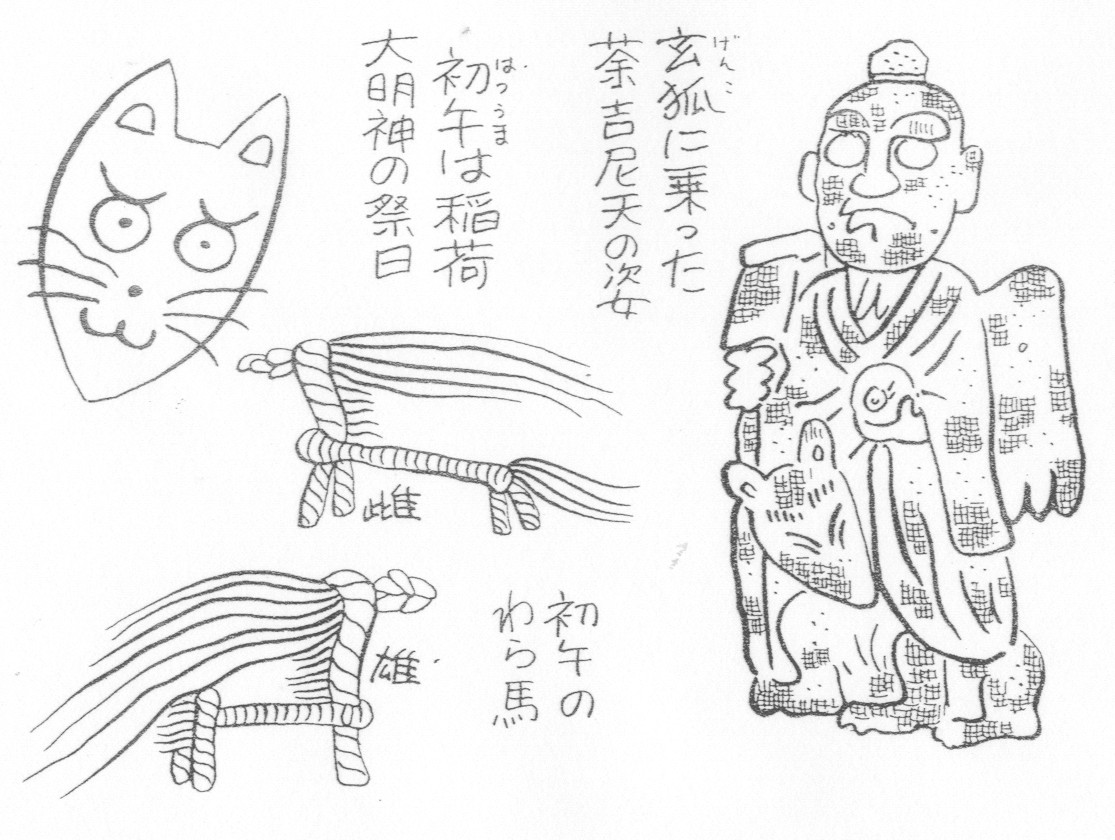 玄狐に乗った
げんこ
荼吉尼天の次女
初午は稲荷
はつうま
大明神の祭日
雌
初午の
わら馬
雄